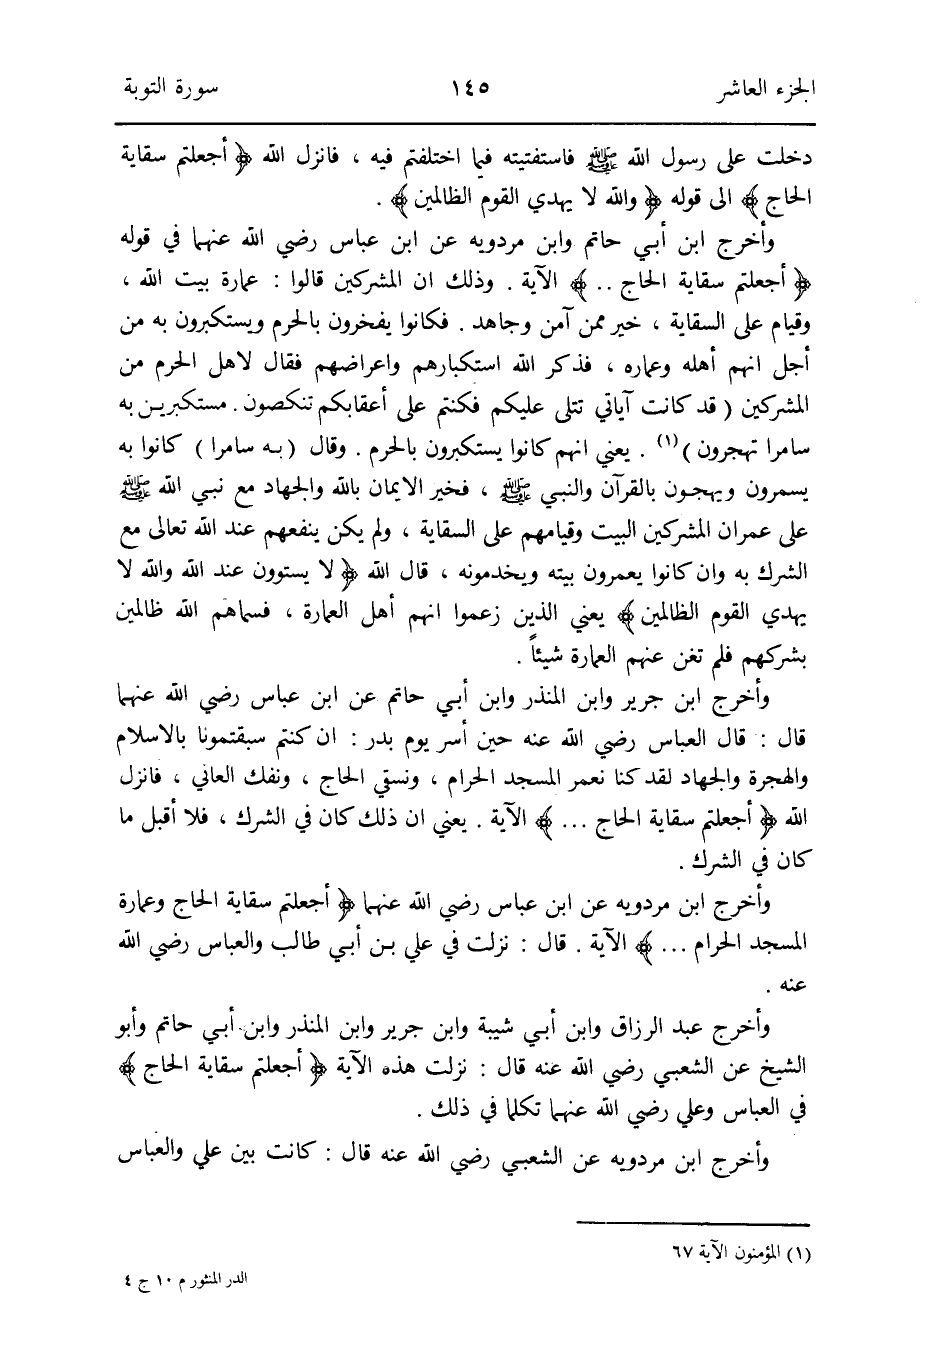 الجزء العاشر ١٤٥ سورة التوبة
دخلت على رسول الله ﷺ فاستفتيته فيما اختلفتم فيه ، فانزل الله ﴿ أجعلتم سقاية
الحاج ﴾ الى قوله ﴿ والله لا يهدي القوم الظالمين ﴾ .
وأخرج ابن أبي حاتم وابن مردويه عن ابن عباس رضي الله عنهما في قوله
﴿ أجعلتم سقاية الحاج .. ﴾ الآية . وذلك ان المشركين قالوا : عمارة بيت الله ،
وقيام على السقاية ، خير ممن آمن وجاهد . فكانوا يفخرون بالحرم ويستكبرون به من
أجل انهم أهله وعماره ، فذكر الله استكبارهم واعراضهم فقال لاهل الحرم من
المشركين ( قد كانت آياتي تتلى عليكم فكنتم على أعقابكم تنكصون . مستكبرين به
سامرا تهجرون )(١) . يعني انهم كانوا يستكبرون بالحرم . وقال ( به سامرا ) كانوا به
يسمرون ويهجون بالقرآن والنبي ﷺ ، فخير الايمان بالله والجهاد مع نبي الله ﷺ
على عمران المشركين البيت وقيامهم على السقاية ، ولم يكن ينفعهم عند الله تعالى مع
الشرك به وان كانوا يعمرون بيته ويخدمونه ، قال الله ﴿ لا يستوون عند الله والله لا
يهدي القوم الظالمين ﴾ يعني الذين زعموا انهم أهل العمارة ، فسماهم الله ظالمين
بشركهم فلم تغن عنهم العمارة شيئاً .
وأخرج ابن جرير وابن المنذر وابن أبي حاتم عن ابن عباس رضي الله عنهما
قال : قال العباس رضي الله عنه حين أسر يوم بدر : ان كنتم سبقتمونا بالاسلام
والهجرة والجهاد لقد كنا نعمر المسجد الحرام ، ونسقي الحاج ، ونفك العاني ، فانزل
الله ﴿ أجعلتم سقاية الحاج ... ﴾ الآية . يعني ان ذلك كان في الشرك ، فلا أقبل ما
كان في الشرك .
وأخرج ابن مردويه عن ابن عباس رضي الله عنهما ﴿ أجعلتم سقاية الحاج وعمارة
المسجد الحرام ... ﴾ الآية . قال : نزلت في علي بن أبي طالب والعباس رضي الله
عنه .
وأخرج عبد الرزاق وابن أبي شيبة وابن جرير وابن المنذر وابن أبي حاتم وأبو
الشيخ عن الشعبي رضي الله عنه قال : نزلت هذه الآية ﴿ أجعلتم سقاية الحاج ﴾
في العباس وعلي رضي الله عنهما تكلما في ذلك .
وأخرج ابن مردويه عن الشعبي رضي الله عنه قال : كانت بين علي والعباس
(١) المؤمنون الآية ٦٧
الدر المنثور م ١٠ ج ٤